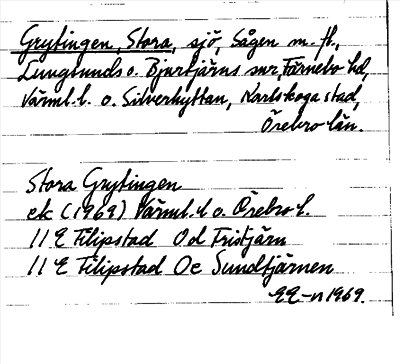 Grytingen, Stora, sjö, Sågen m. fl.,
Lungsunds o. Bjurtjärns snr, Färnebo hd,
Värml. l. o. Silverhyttan, Karlskoga stad,
Örebro län.
Stora Grytingen
ek (1969) Värml. l o. Örebro l.
11 E Filipstad 0d Fristjärn
11 E Filipstad 0e Sundtjärnen
EE-n 1969.